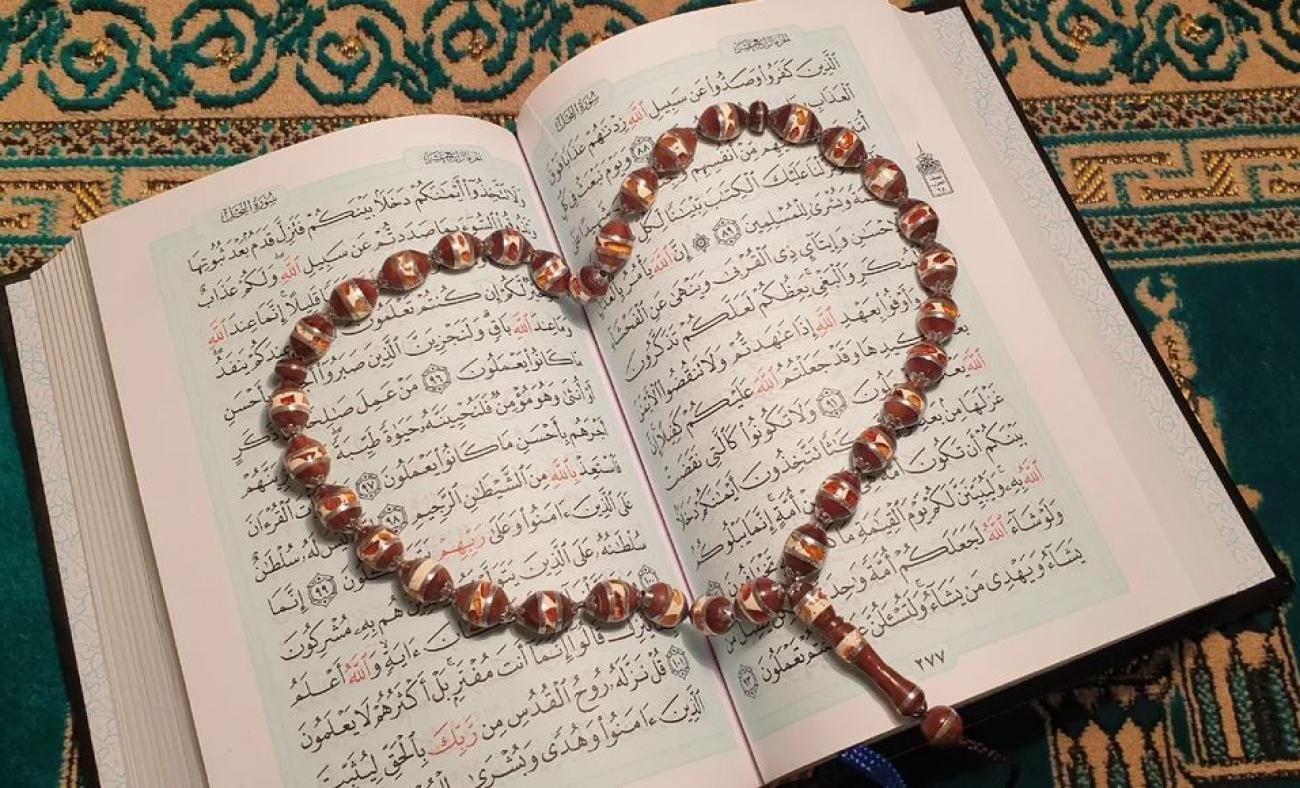 الجزء الرابع عشر
سورة النحل
ٱلَّذِينَ كَفَرُوا۟ وَصَدُّوا۟ عَن سَبِيلِ ٱللَّهِ زِدْنَٰهُمْ عَذَابًا فَوْقَ
ٱلْعَذَابِ ٨٨ وَيَوْمَ نَبْعَثُ فِى كُلِّ
مِّنْ أَنفُسِهِمْ
عَلَيْكَ ٱلْكِتَٰبَ تِبْيَٰنًا لِّكُلِّ
وَبُشْرَىٰ لِلْمُسْلِمِينَ ٨٩ إِنَّ ٱللَّهَ يَأْمُرُ
وَإِيتَآئِ ذِى ٱلْقُرْبَىٰ وَيَنْهَىٰ عَنِ ٱلْفَحْشَآءِ
وَٱلْبَغْىِ يَعِظُكُمْ لَعَلَّكُمْ تَذَكَّرُونَ
وَأَوْفُوا۟ بِعَهْدِ ٱللَّهِ إِذَا عَٰهَدتُّمْ وَلَا تَنقُضُوا۟ ٱلْأَيْمَٰنَ
بَعْدَ وَقَدْ جَعَلْتُمُ ٱللَّهَ عَلَيْكُمْ كَفِيلًا إِنَّ
ٱللَّهَ يَعْلَمُ ٩١ وَلَا تَكُونُوا۟ كَٱلَّتِى نَقَضَتْ
غَزْلَهَا مِنۢ بَعْدِ تَتَّخِذُونَ أَيْمَٰنَكُمْ دَخَلًا
بَيْنَكُمْ أَن تَكُونَ مِنْ أُمَّةٍ إِنَّمَا يَبْلُوكُمُ
ٱللَّهُ بِهِۦ وَلَيُبَيِّنَنَّ لَكُمْ يَوْمَ ٱلْقِيَٰمَةِ مَا
وَلَوْ شَآءَ ٱللَّهُ لَجَعَلَكُمْ أُمَّةً وَٰحِدَةً
يَشَآءُ وَيَهْدِى مَن يَشَآءُ وَلَتُسْـَٔلُنَّ تَعْمَلُونَ ٩٣
٢٧٧
الجزء الرابع عشر
سورة النحل
وَلَا تَتَّخِذُوٓا۟ أَيْمَٰنَكُمْ دَخَلًۢا بَيْنَكُمْ فَتَزِلَّ قَدَمٌۢ بَعْدَ ثُبُوتِهَا
ٱلسُّوٓءَ بِمَا صَدَدتُّمْ عَن سَبِيلِ ٱللَّهِ وَلَكُمْ عَذَابٌ
قَلِيلًا إِنَّمَا عِندَ ٱللَّهِ
لَّكُمْ إِن كُنتُمْ تَعْلَمُونَ يَنفَدُ
وَمَا عِندَ ٱللَّهِ بَاقٍ وَلَنَجْزِيَنَّ ٱلَّذِينَ صَبَرُوٓا۟ بِأَحْسَنِ
مَا كَانُوا۟ يَعْمَلُونَ ٩٦ مَنْ عَمِلَ صَٰلِحًا ذَكَرٍ
أَوْ أُنثَىٰ وَهُوَ مُؤْمِنٌ فَلَنُحْيِيَنَّهُۥ حَيَوٰةً طَيِّبَةً
أَجْرَهُم بِأَحْسَنِ مَا كَانُوا۟ يَعْمَلُونَ ٩٧ ٱلْقُرْءَانَ
فَٱسْتَعِذْ بِٱللَّهِ مِنَ ٱلشَّيْطَٰنِ ٱلرَّجِيمِ ٩٨ سُلْطَٰنٌ
عَلَى ٱلَّذِينَ ءَامَنُوا۟ وَعَلَىٰ رَبِّهِمْ ٩٩ إِنَّمَا
سُلْطَٰنُهُۥ عَلَى ٱلَّذِينَ هُم بِهِۦ مُشْرِكُونَ
ءَايَةٍ وَٱللَّهُ أَعْلَمُ
قَالُوٓا۟ إِنَّمَآ أَنتَ مُفْتَرٍۭ بَلْ أَكْثَرُهُمْ لَا يَعْلَمُونَ
١٠١ قُلْ نَزَّلَهُۥ رُوحُ ٱلْقُدُسِ مِن رَّبِّكَ بِٱلْحَقِّ لِيُثَبِّتَ
ٱلَّذِينَ ءَامَنُوا۟ وَهُدًى وَبُشْرَىٰ